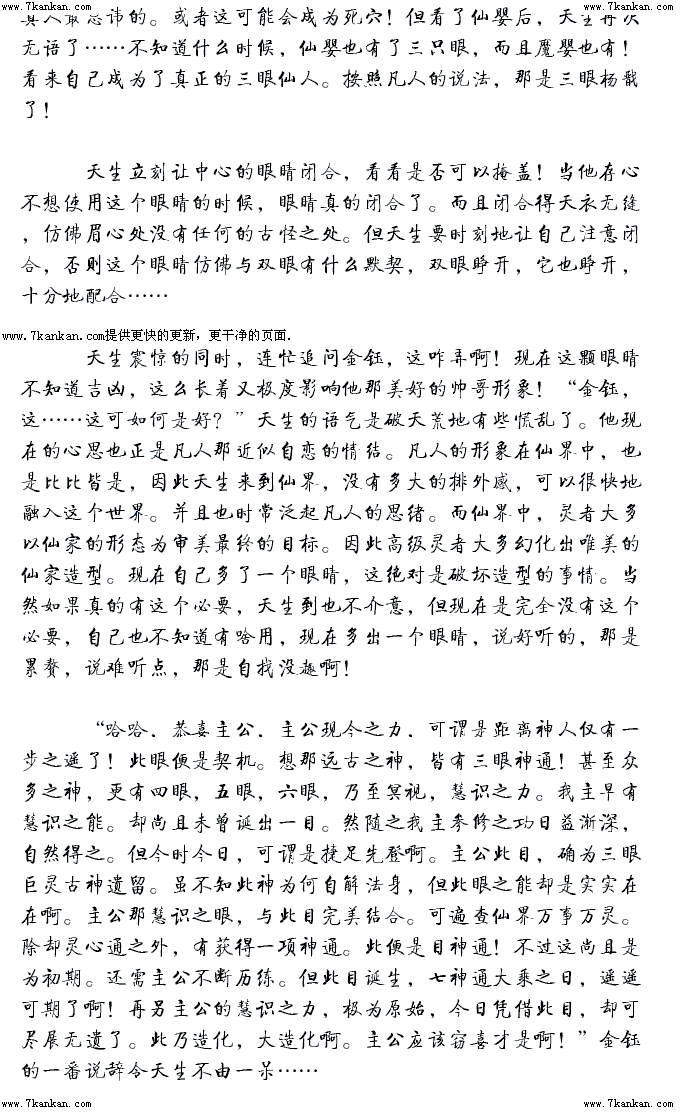 www.7kankan.com www.7kankan.com
无语了……不知道什么时候，仙婴也有了三只眼，而且魔婴也有！
看来自己成为了真正的三眼仙人。按照凡人的说法，那是三眼杨戬
了！
天生立刻让中心的眼睛闭合，看看是否可以掩盖！当他存心
不想使用这个眼睛的时候，眼睛真的闭合了。而且闭合得天衣无缝
，仿佛眉心处没有任何的古怪之处。但天生要时刻地让自己注意闭
合，否则这个眼睛仿佛与双眼有什么默契，双眼睁开，它也睁开，
十分地配合……
www.7kankan.com提供更快的更新，更干净的页面.
天生震惊的同时，连忙追问金钰，这咋弄啊！现在这颗眼睛
不知道吉凶，这么长着又极度影响他那美好的帅哥形象！“金钰，
这……这可如何是好？”天生的语气是破天荒地有些慌乱了。他现
在的心思也正是凡人那近似自恋的情结。凡人的形象在仙界中，也
是比比皆是，因此天生来到仙界，没有多大的排外感，可以很快地
融入这个世界。并且也时常泛起凡人的思绪。而仙界中，灵者大多
以仙家的形态为审美最终的目标。因此高级灵者大多幻化出唯美的
仙家造型。现在自己多了一个眼睛，这绝对是破坏造型的事情。当
然如果真的有这个必要，天生到也不介意，但现在是完全没有这个
必要，自己也不知道有啥用，现在多出一个眼睛，说好听的，那是
累赘，说难听点，那是自找没趣啊！
“哈哈．恭喜主公．主公现今之力．可谓是距离神人仅有一
步之遥了！此眼便是契机。想那远古之神，皆有三眼神通！甚至众
多之神，更有四眼，五眼，六眼，乃至冥视，慧识之力。我主早有
慧识之能。却尚且未曾诞出一目。然随之我主参修之功日益渐深，
自然得之。但今时今日，可谓是捷足先登啊。主公此目，确为三眼
巨灵古神遗留。虽不知此神为何自解法身，但此眼之能却是实实在
在啊。主公那慧识之眼，与此目完美结合。可遍查仙界万事万灵。
除却灵心通之外，有获得一项神通。此便是目神通！不过这尚且是
为初期。还需主公不断历练。但此目诞生，七神通大乘之日，遥遥
可期了啊！再另主公的慧识之力，极为原始，今日凭借此目，却可
尽展无遗了。此乃造化，大造化啊。主公应该窃喜才是啊！”金钰
的一番说辞令天生不由一呆……
www.7kankan.com www.7kankan.com